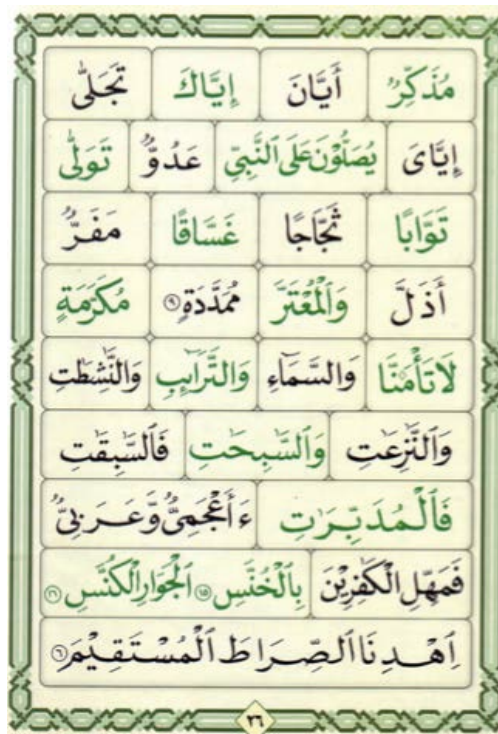 مُذَكِّرٌ أَيَّانَ إِيَّاكَ تَجَلّٰى
إِيَّاىَ يُصَلُّوْنَ عَلَى النَّبِيِّ عَدُوٌّ تَوَلّٰى
تَوَّابًا ثَجَّاجًا غَسَّاقًا مَفَرُّ
أَذَلَّ وَالْمُعْتَرَّ مُمَدَّدَةٍ ۹ مُكَرَّمَةٍ
لَا تَأْمَنَّا وَالسَّمَآءِ وَالتَّرَآئِبِ وَالنّٰشِطٰتِ
وَالنّٰزِعٰتِ وَالسّٰبِحٰتِ فَالسّٰبِقٰتِ
فَالْمُدَبِّرٰتِ ءَاَعْجَمِىٌّ وَّعَرَبِىٌّ
فَمَهِّلِ الْكٰفِرِيْنَ بِالْخُنَّسِ ۱۵ الْجَوَارِ الْكُنَّسِ ۱۶
اِهْدِنَا الصِّرَاطَ الْمُسْتَقِيْمَ ۶
۲۶